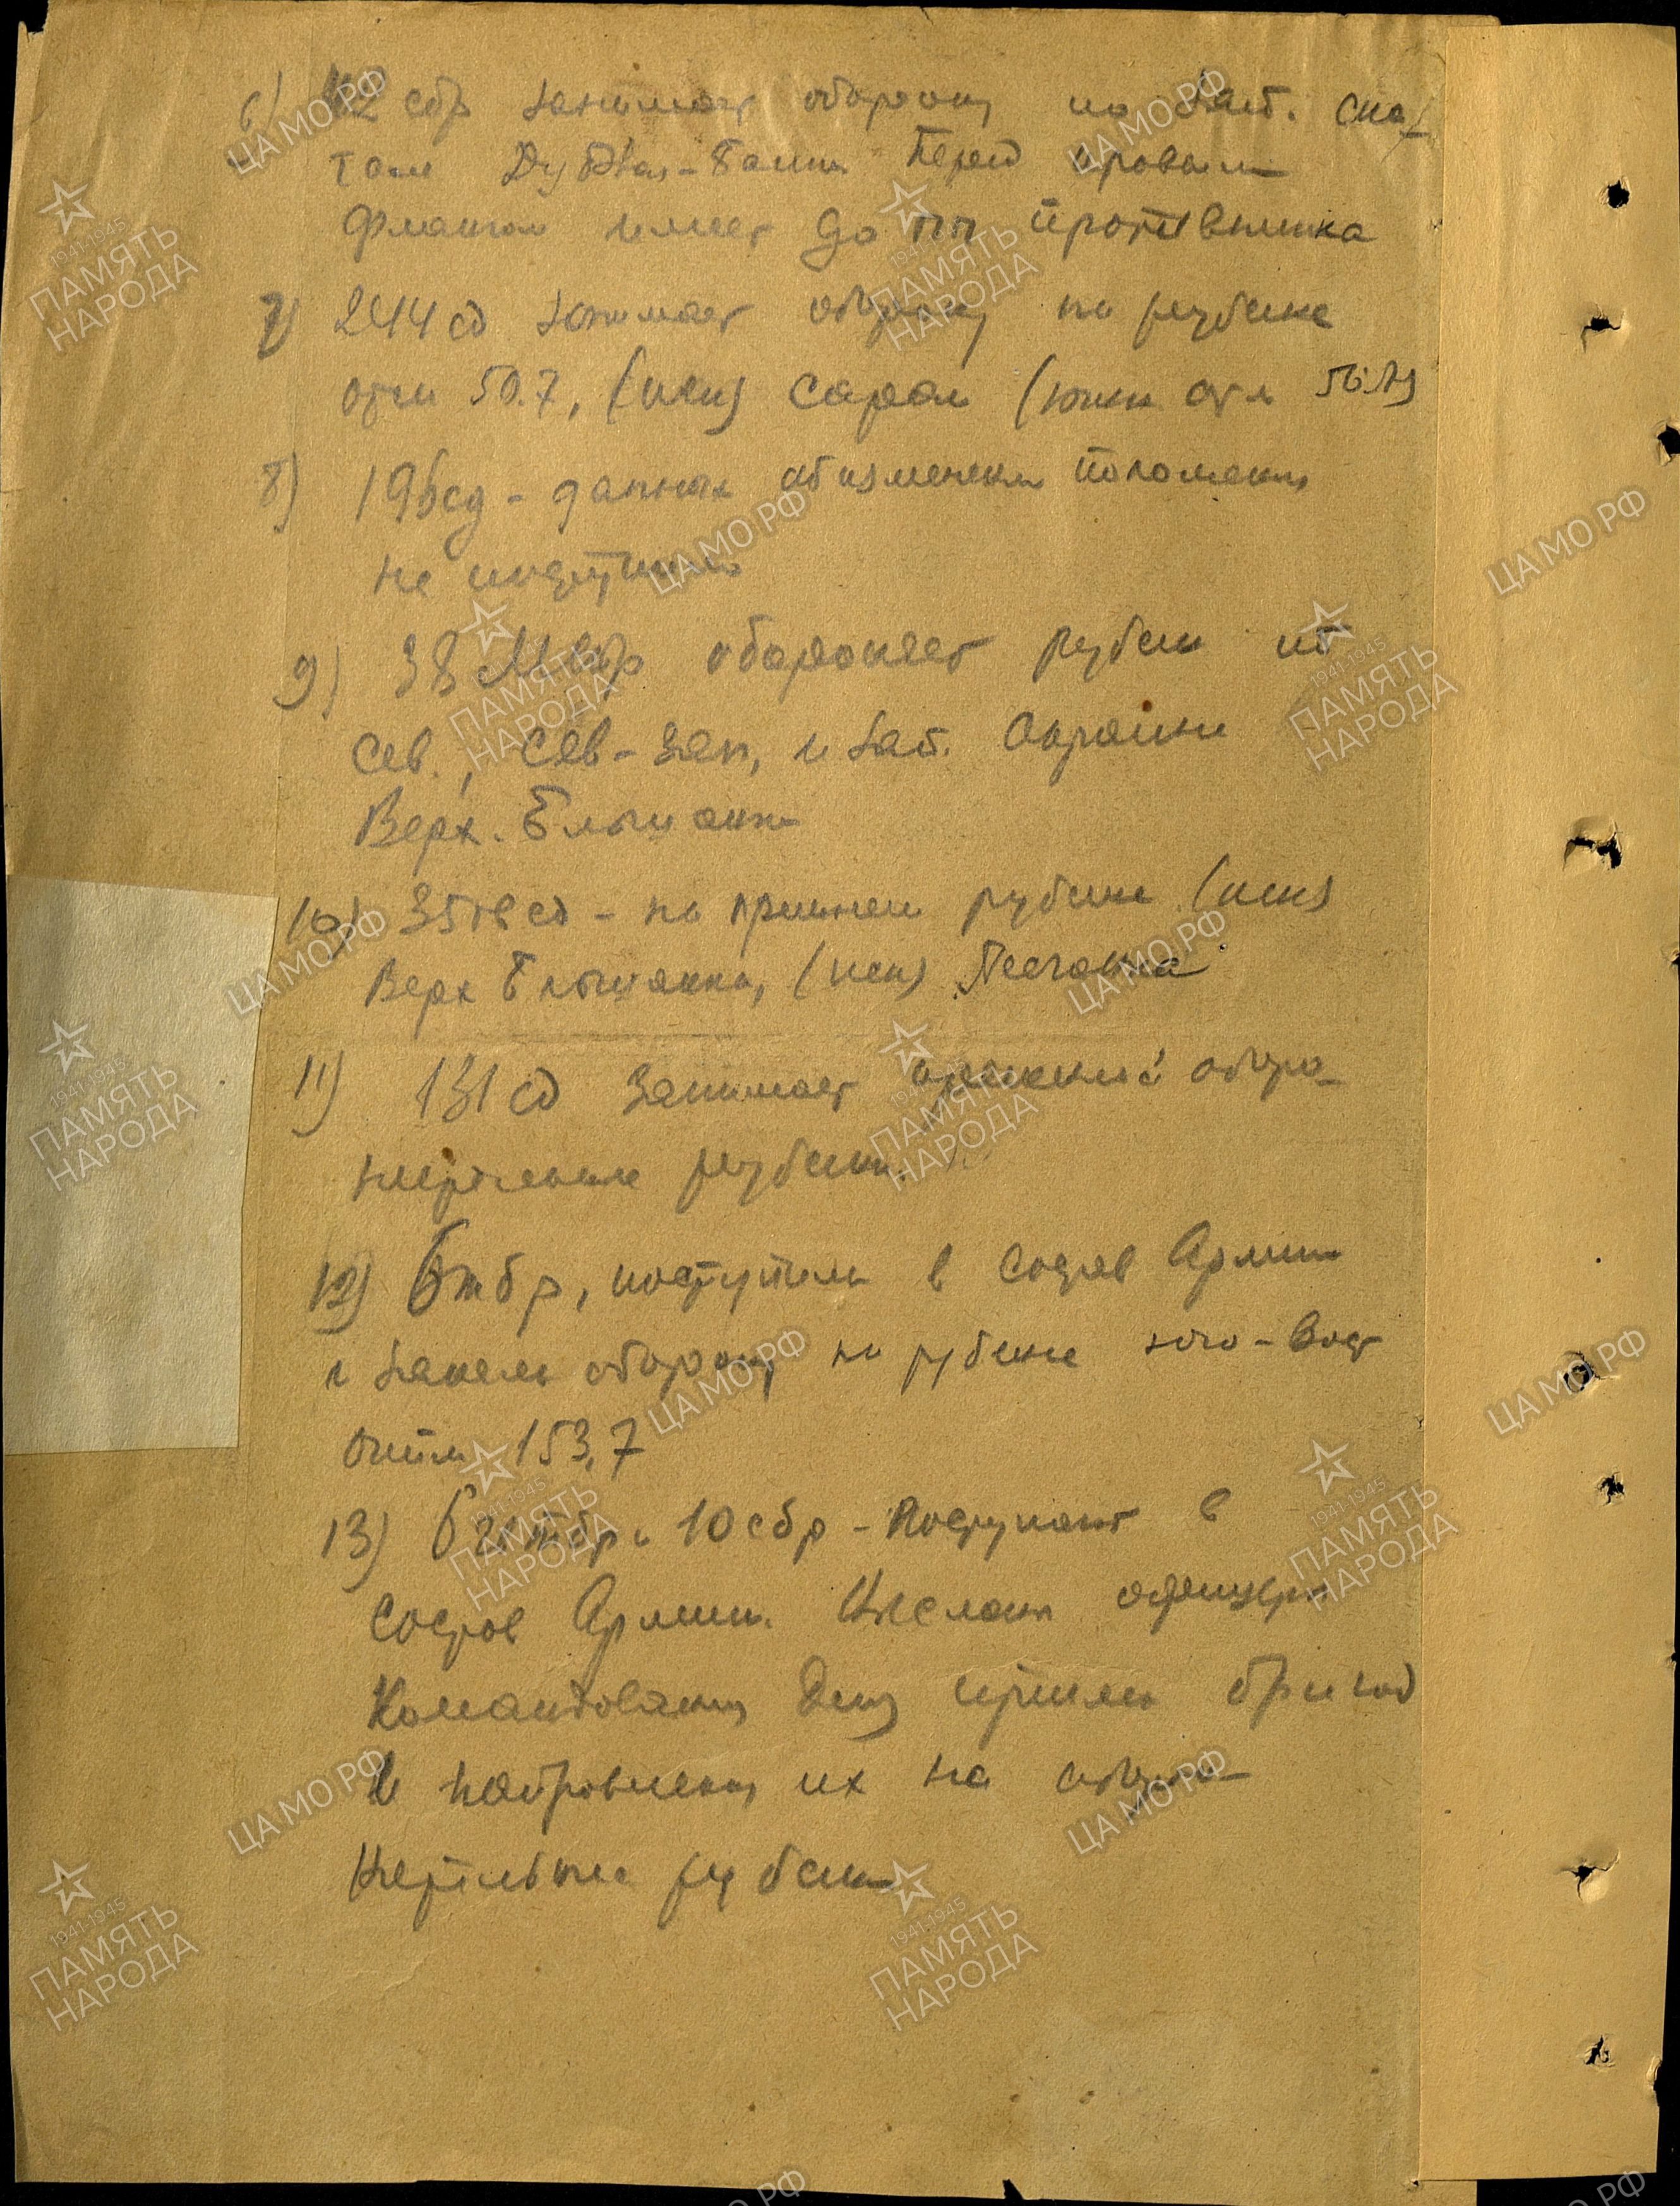 6) 42 сбр занимает оборону по зап. ска-
там Дубовая-балка Перед правым
флангом имеет до пп противника
7) 244 сд занимает оборону на рубеже
отм 50.7, (иск) Сараи (южн отм
8) 196 сд - данных об изменении положения
не поступило
9) 38 Мсбр обороняет рубеж по
Сев., Сев-зап, и зап. Окраине
Верх. Ельшанки
10) 35 гв сд - на прежнем рубеже (иск)
Верх Ельшанка, (иск) Песчанка
11) 131 сд занимает прежний оборо-
нительные рубежи.
12) 6 тбр, поступила в состав Армии
и заняла оборону на рубеже юго-вост
отм 153,7
13) тбр и 10 сбр - поступают в
состав Армии. Высланы офицеры
Командования для приема бригад
и направления их на оборо-
нительные рубежи
ЦА МО РФ
1941-1945
ПАМЯТЬ
НАРОДА